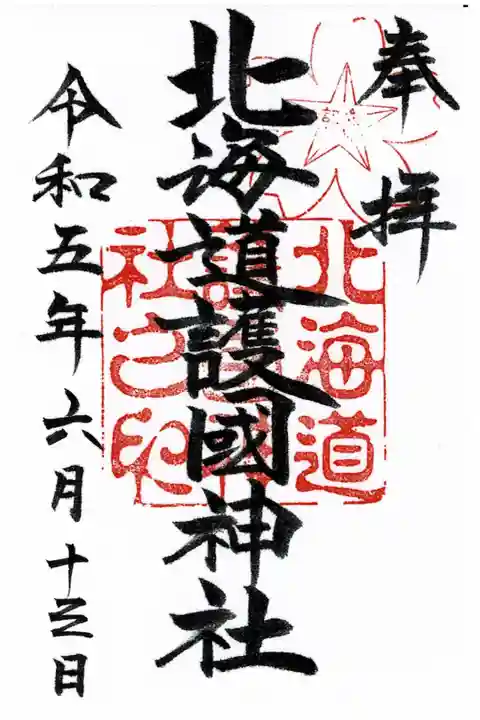 奉拝
北海道護國神社
北海道
護國神
社之印
令和五年六月十五日